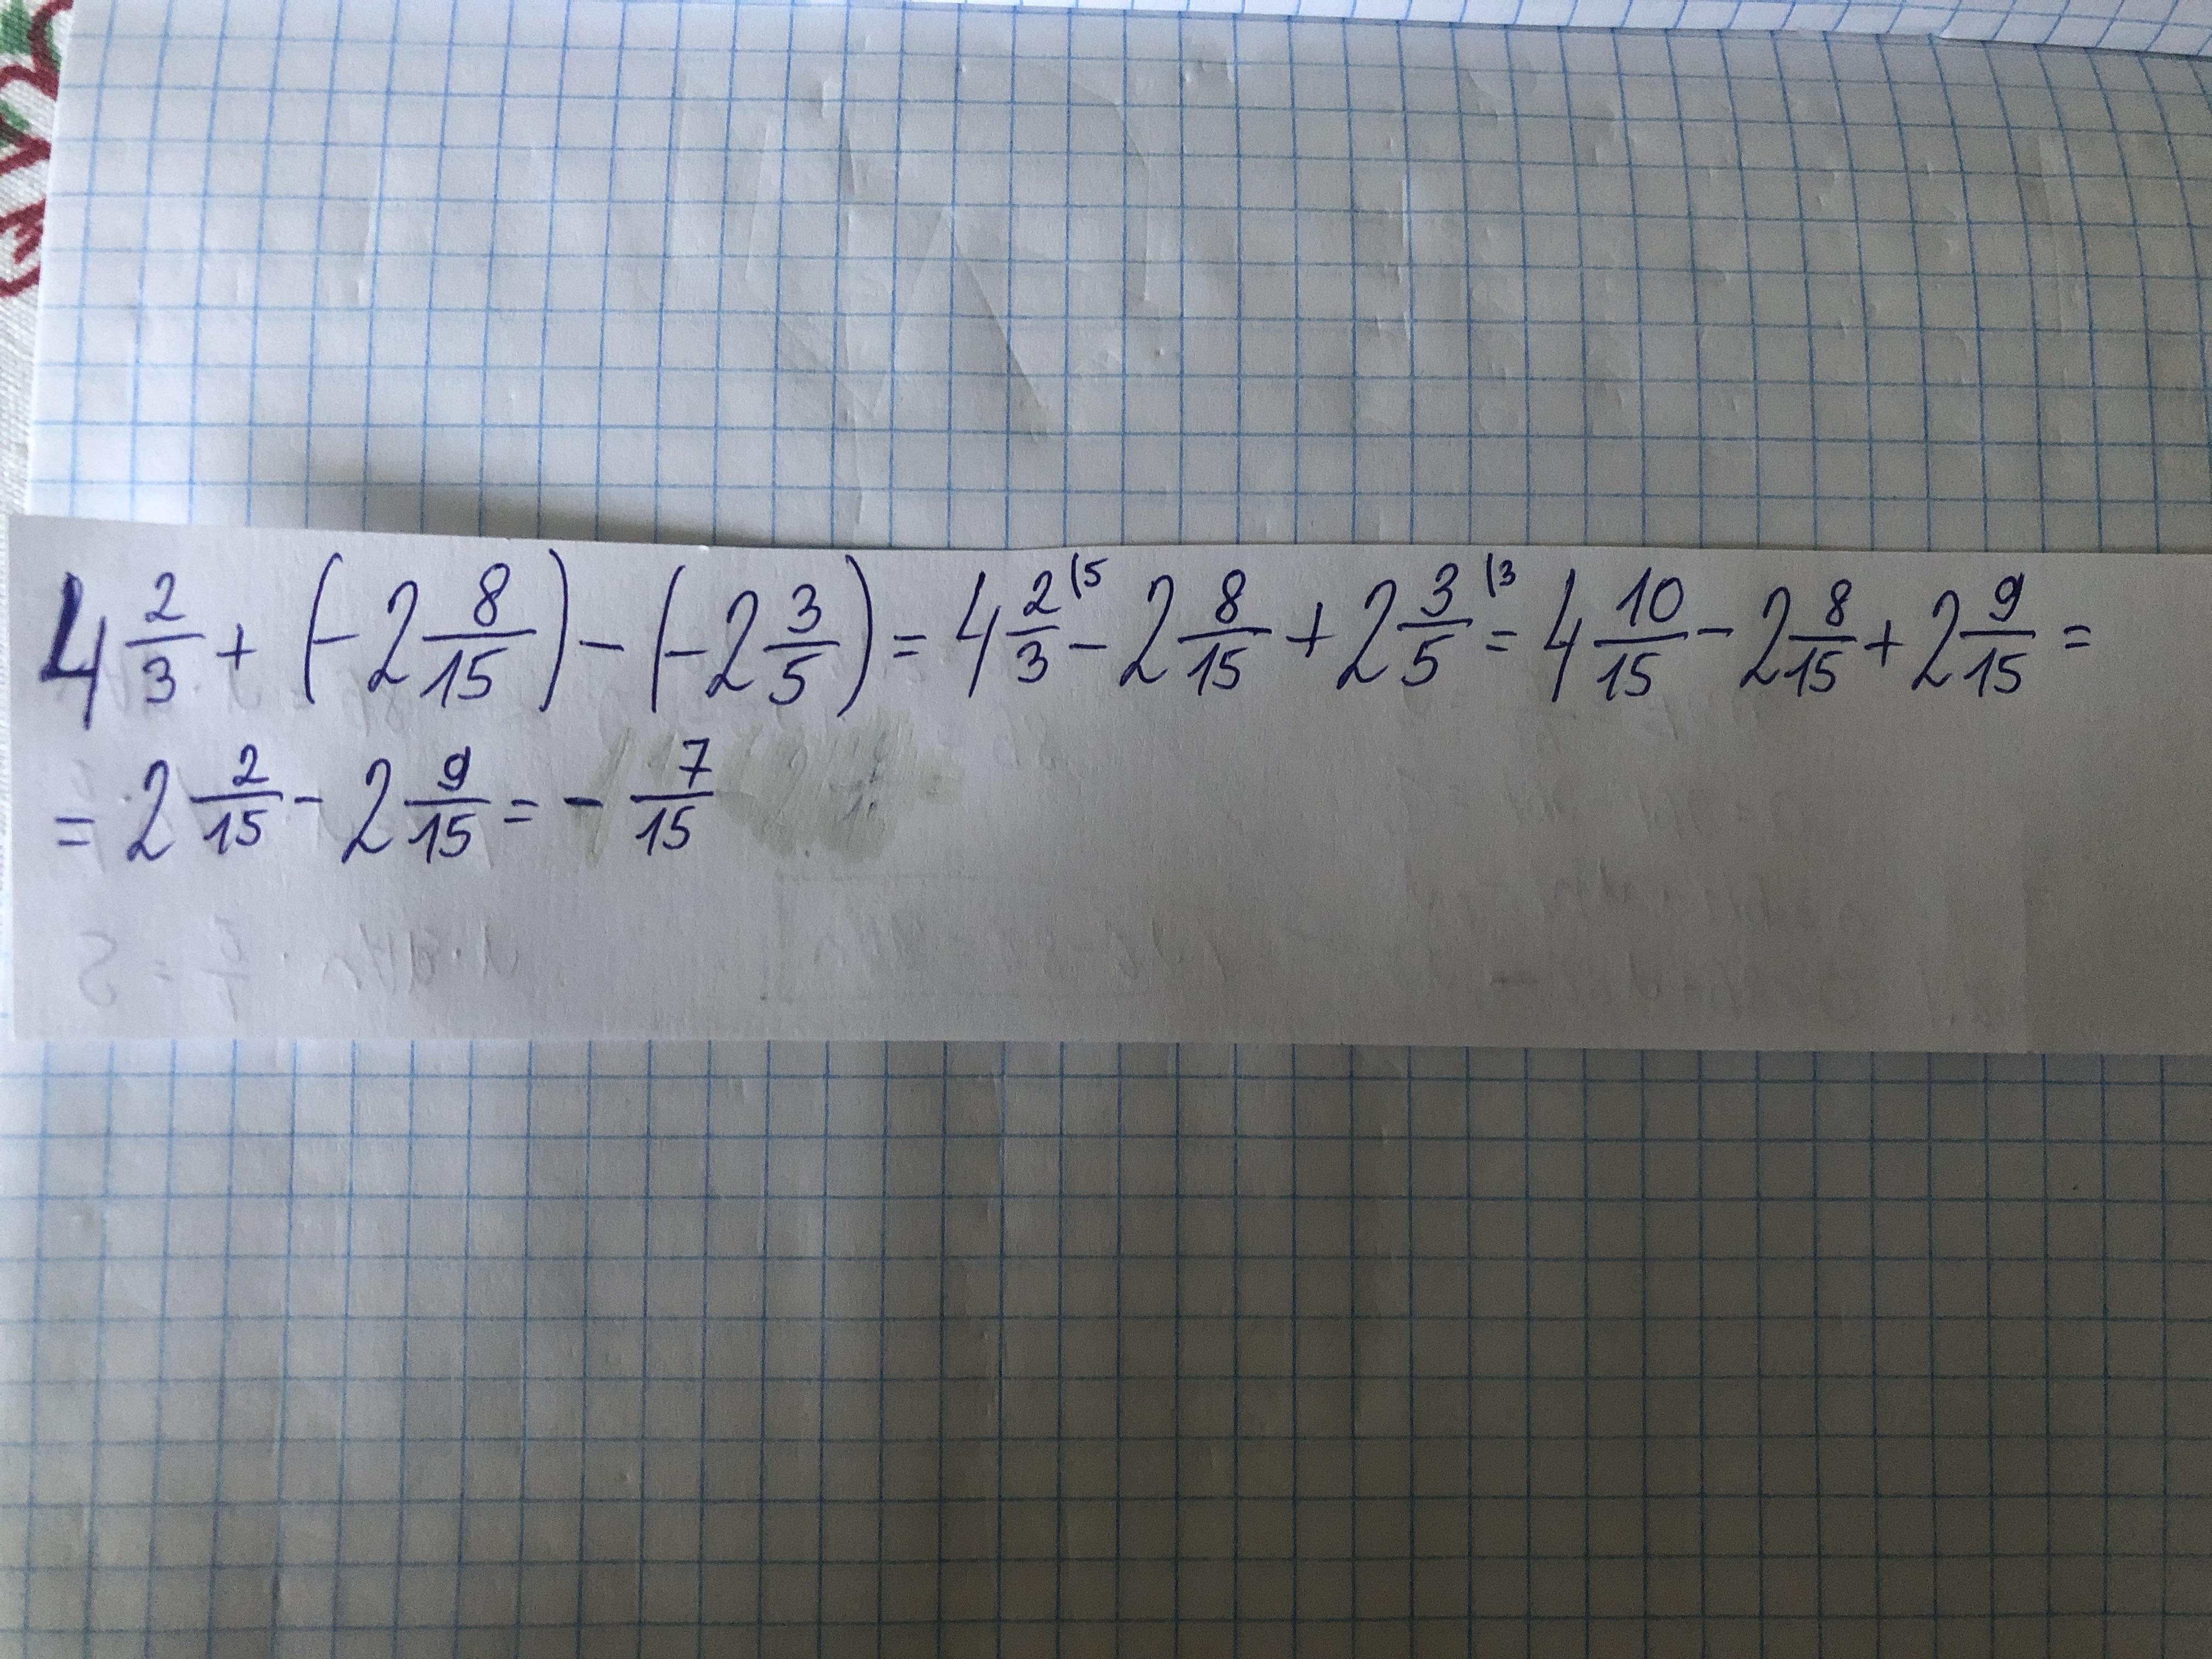 4 2/3 + (-2 8/15) - (-2 3/5) = 4 2/3 (5 - 2 8/15 + 2 3/5 (3 = 4 10/15 - 2 8/15 + 2 9/15 =
= 2 2/15 - 2 9/15 = - 7/15